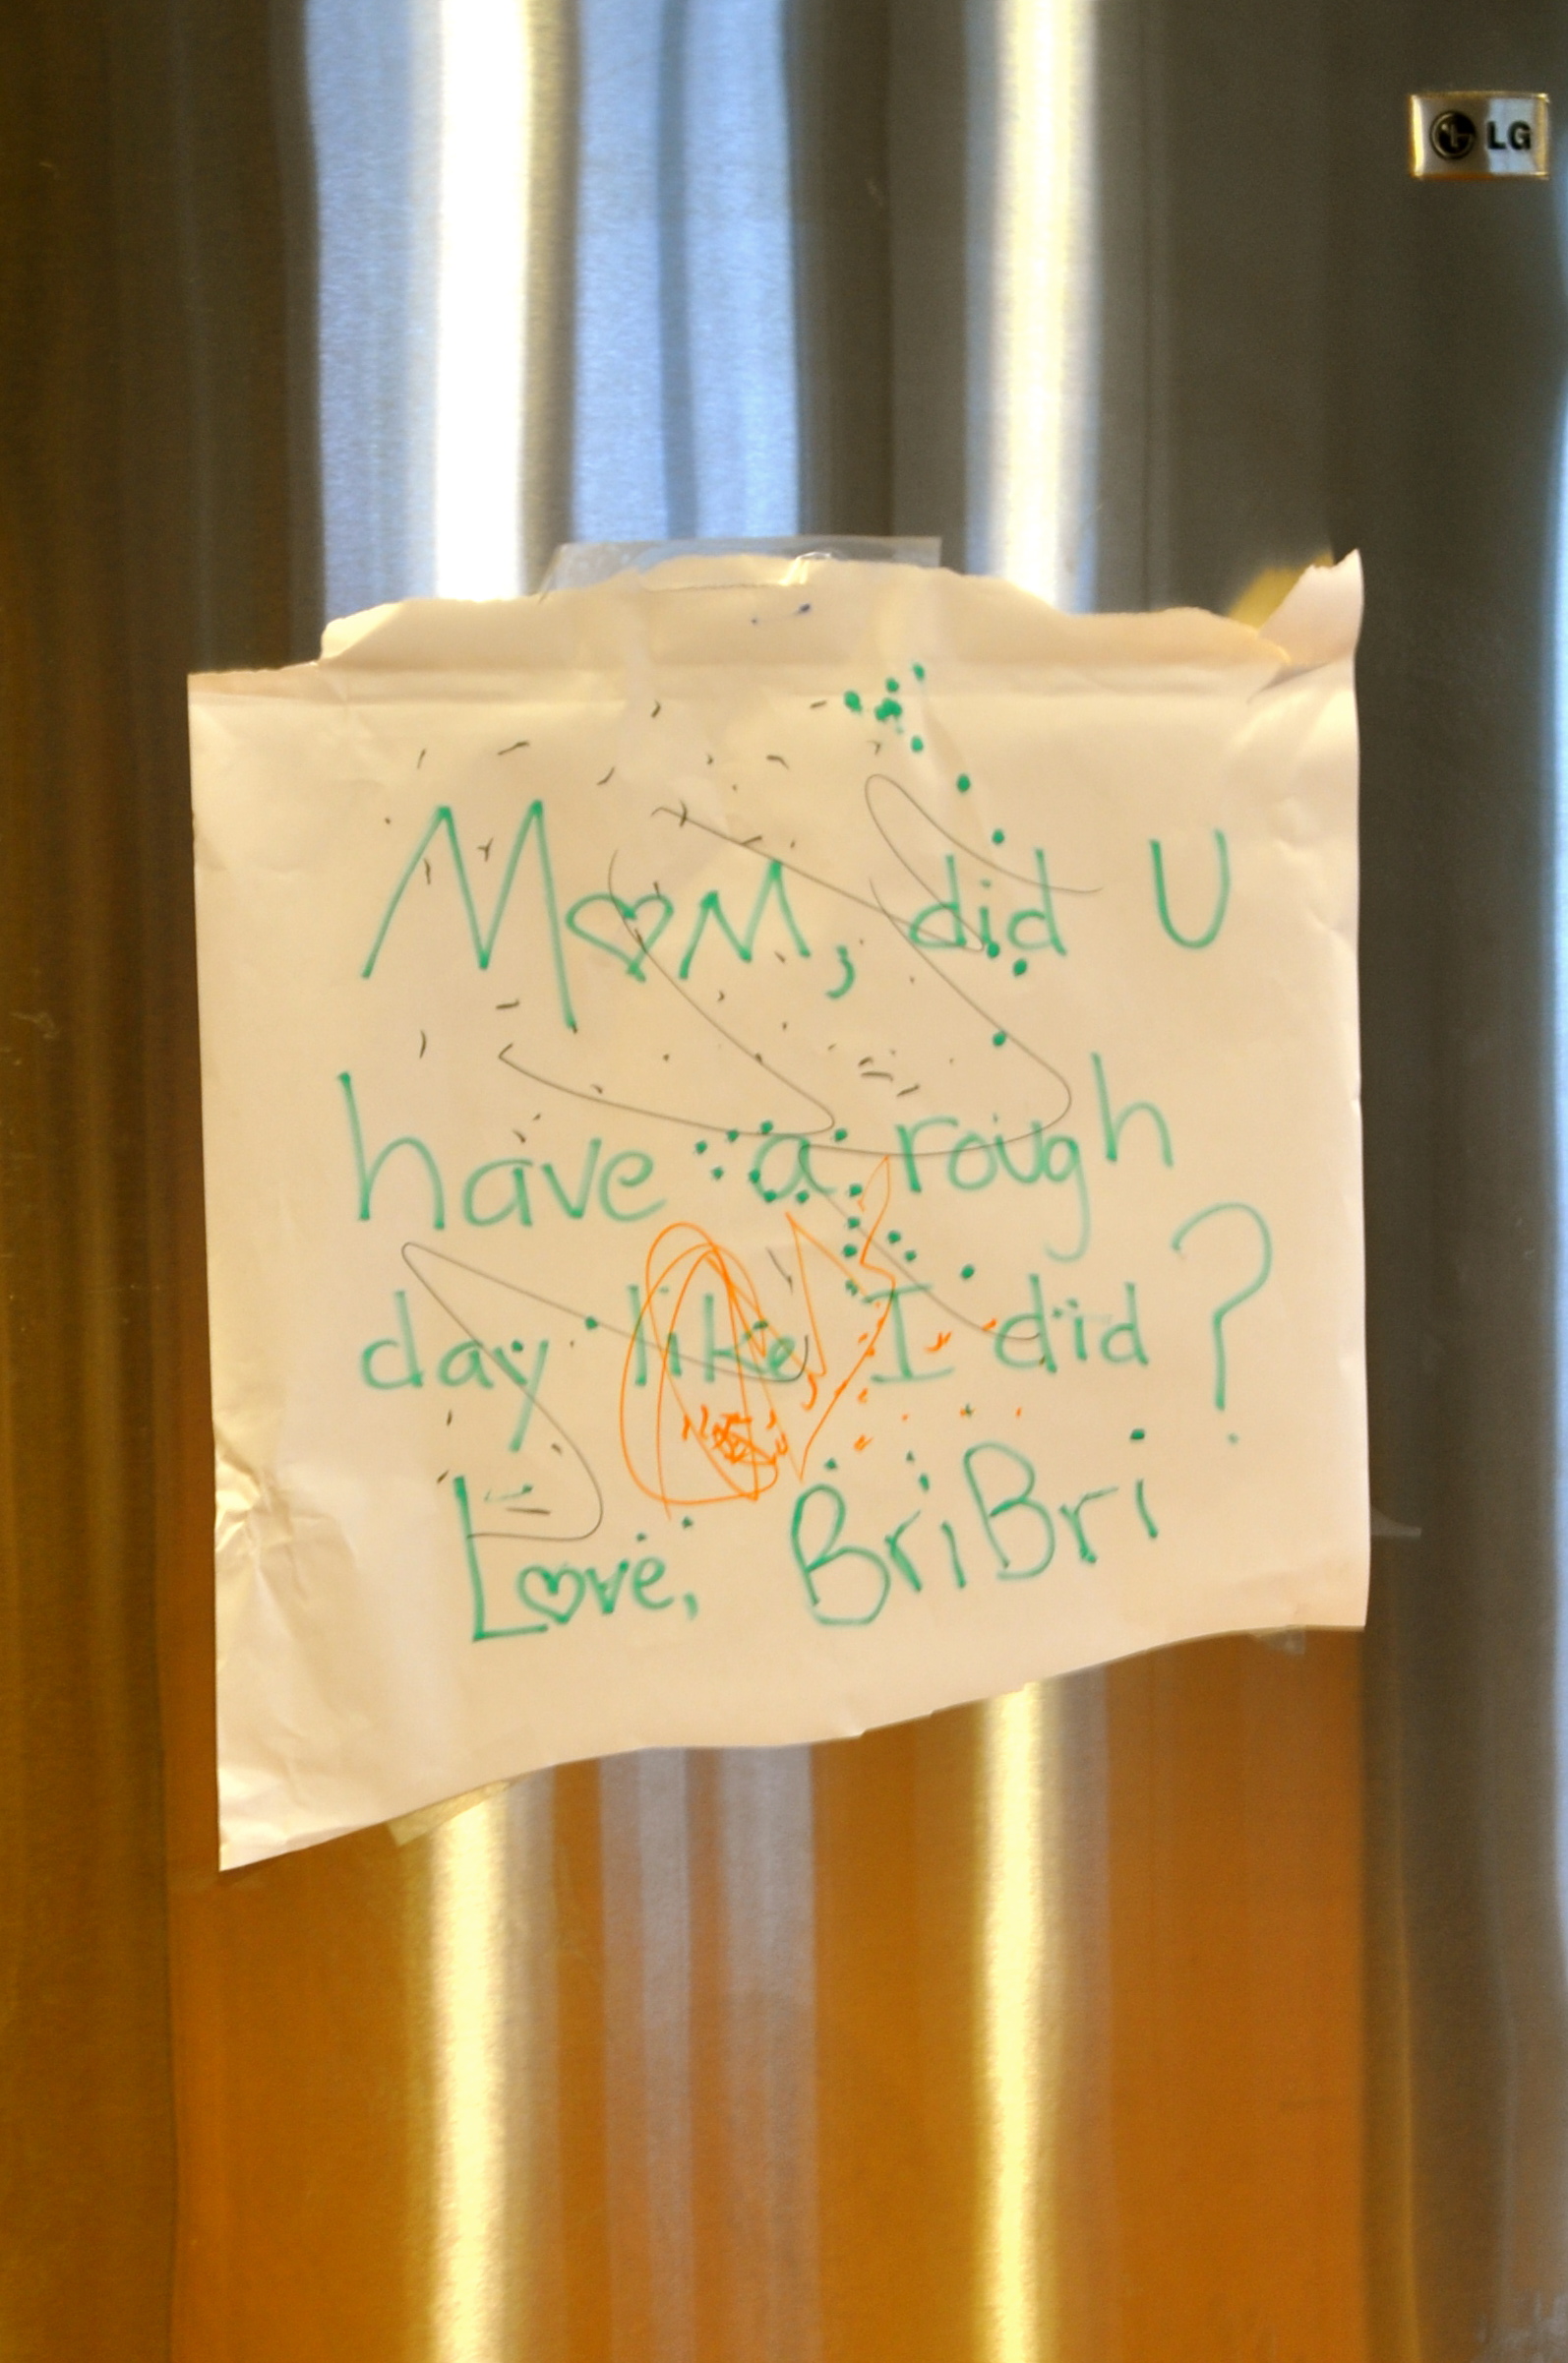 LG
M♡M, did U
have a rough
day like I did?
L♡ve, BriBri